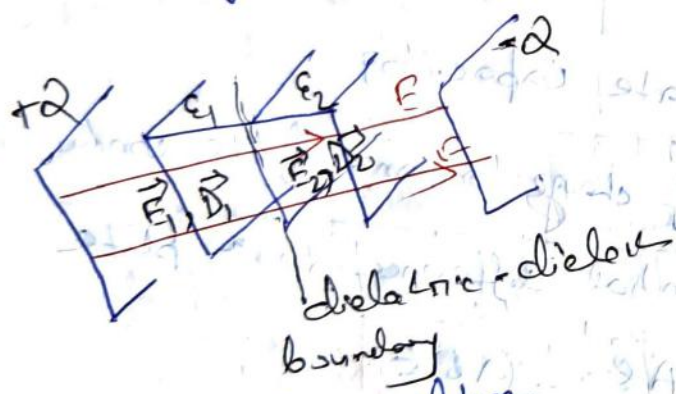 +Q
-Q
ε₁
ε₂
E
E⃗₁, D⃗₁
E⃗₂, D⃗₂
E
dielatric-dielect
boundary